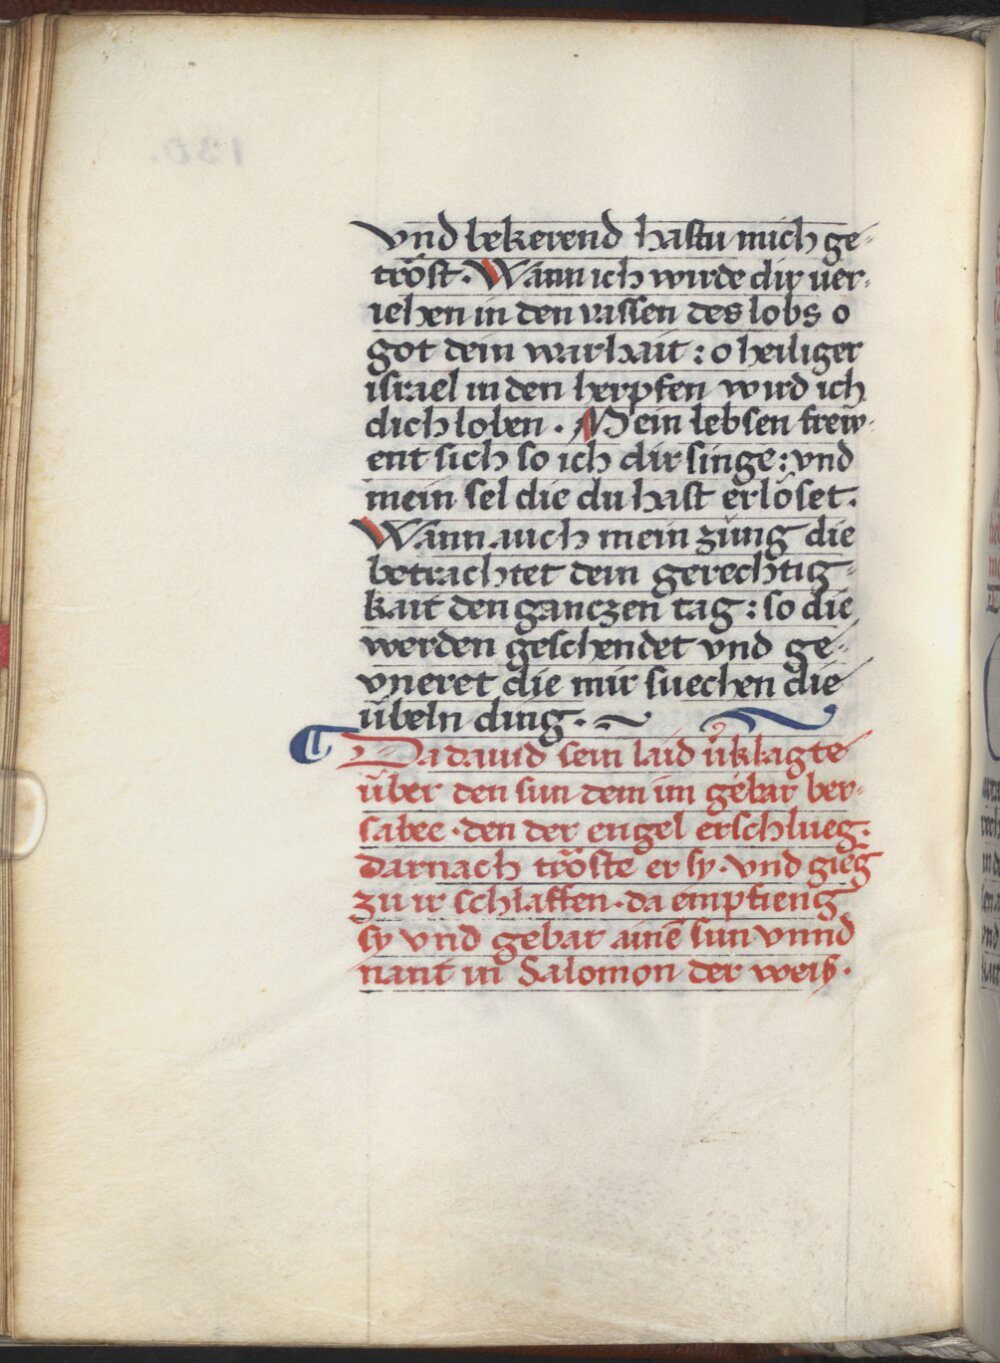 vnd bekerend hastu mich ge-
tröst. Wann ich wirde dir uer-
iehen in den vassen des lobs o
got dein warhait: o heiliger
israel in den herpfen wird ich
dich loben. Mein lebsen frew-
ent sich so ich dir singe: vnd
mein sel die du hast erlöset.
Wann auch mein züng die
betrachtet dein gerechtig-
kait den ganczen tag: so die
werden geschendet vnd ge-
vneret die mir suechen die
übeln ding.
Da dauid sein laid v̉klagte
über den sun dem im gebar ber-
sabee. den der engel erschlueg.
darnach tröste er sy. vnd gieg
zu ir schlaffen. da empfieng
sy vnd gebar ainē sun vnnd
nant in Salomon der weiß.